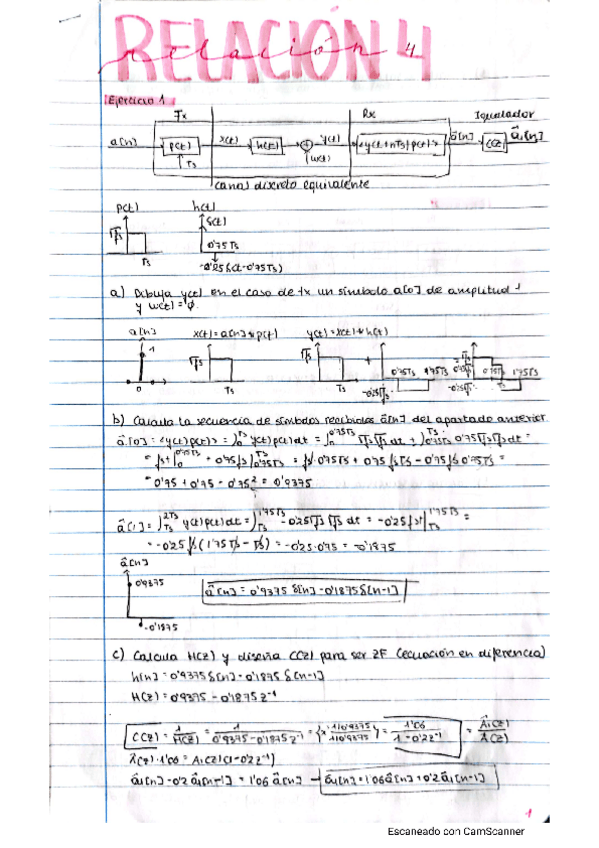 RELACIÓN 4
relación
Ejercicio 1
Tx Rx Igualador
a[n] p(t) x(t) h(t) y(t) <y(t+nTs)p(t)> â[n] C(z) â₁[n]
Ts w(t)
canal discreto equivalente
p(t) h(t)
δ(t)
√fs 0'75Ts
Ts -0'25δ(t-0'75Ts)
a) Dibuja y(t) en el caso de tx un símbolo a[0] de amplitud 1
y w(t)=φ.
a[n] x(t)=a[n]*p(t) y(t)=x(t)*h(t)
1 √fs √fs + 0'75Ts 1'75Ts
0 Ts Ts -0'25√fs 1'75Ts
b) Calcula la secuencia de símbolos recibidos â[n] del apartado anterior
â[0]=<y(t)p(t)>=∫₀^Ts y(t)p(t)dt=∫₀^0'75Ts √fs√fs dt+∫_0'75Ts^Ts 0'75√fs√fs dt=
=fst|₀^0'75Ts+0'75fst|_0'75Ts^Ts=fs·0'75Ts+0'75fsTs-0'75fs0'75Ts=
=0'75+0'75-0'75²=0'9375
â[1]=∫_Ts^2Ts y(t)p(t)dt=∫_Ts^1'75Ts -0'25√fs√fs dt=-0'25fst|_Ts^1'75Ts=
=-0'25fs(1'75Ts-Ts)=-0'25·0'75=-0'1875
â[n]
0'9375
â[n]=0'9375δ[n]-0'1875δ[n-1]
-0'1875
c) Calcula H(z) y diseña C(z) para ser ZF (ecuación en diferencia)
h[n]=0'9375δ[n]-0'1875δ[n-1]
H(z)=0'9375-0'1875z⁻¹
C(z)=1/H(z)=1/(0'9375-0'1875z⁻¹)={x (1/0'9375)/(1/0'9375)}=1'06/(1-0'2z⁻¹)=Â₁(z)/Â(z)
Â(z)·1'06=Â₁(z)(1-0'2z⁻¹)
â₁[n]-0'2â₁[n-1]=1'06â[n] → â₁[n]=1'06â[n]+0'2â₁[n-1]
1
Escaneado con CamScanner